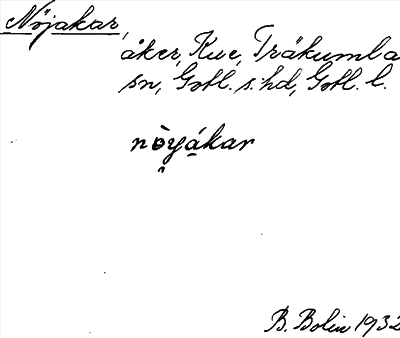 Nöjakar,
åker, Kue, Träkumla
sn, Gotl. s:hd, Gotl. l.
nòyákar
B. Bolin 1932